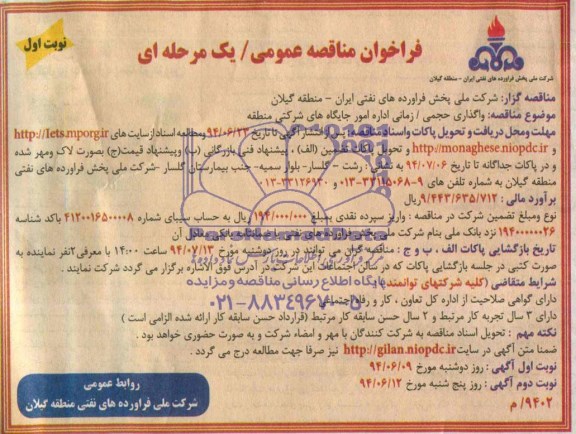 نوبت اول
فراخوان مناقصه عمومی/ یک مرحله ای
شرکت ملی پخش فراورده های نفتی ایران - منطقه گیلان
مناقصه گزار: شرکت ملی پخش فراورده های نفتی ایران - منطقه گیلان
موضوع مناقصه: واگذاری حجمی / زمانی اداره امور جایگاه های شرکتی منطقه
مهلت ومحل دریافت و تحویل پاکات واسناد مناقصه: پس از انتشار آگهی تا تاریخ ۹۴/۰۶/۲۳ ومطالعه اسناد ازسایت های http://Iets.mporg.ir
و http://monaghese.niopdc.ir و تحویل پاکات تضمین (الف) ، پیشنهاد فنی بازرگانی (ب) وپیشنهاد قیمت(ج) بصورت لاک ومهر شده
و در پاکات جداگانه تا تاریخ ۹۴/۰۷/۰۶ به نشانی : رشت - گلسار- بلوار سمیه- جنب بیمارستان گلسار -شرکت ملی پخش فراورده های نفتی
منطقه گیلان به شماره تلفن های ۹-۳۳۱۱۵۰۶۸-۰۱۳ و ۳۳۱۲۶۹۳۰-۰۱۳
برآورد مالی : ۹/۴۴۳/۶۳۵/۷۱۲ریال
نوع ومبلغ تضمین شرکت در مناقصه : واریز سپرده نقدی بمبلغ ۱۹۴/۰۰۰/۰۰۰ ریال به حساب سیبای شماره ۴۱۲۰۰۱۶۵۰۰۰۰۸ باکد شناسه
۱۹۴۰۰۰۰۰۲۶ نزد بانک ملی بنام شرکت ملی پخش فراورده های نفتی یا ضمانتنامه بانکی معادل آن
تاریخ بازگشایی پاکات الف ، ب و ج : مناقصه گران می توانند در روز دوشنبه مورخ ۹۴/۰۷/۱۳ ساعت ۱۴:۰۰ با معرفی۲نفر نماینده به
صورت کتبی در جلسه بازگشایی پاکات که در سالن اجتماعات این شرکت در آدرس فوق الاشاره برگزار می گردد شرکت نمایند .
شرایط متقاضی (کلیه شرکتهای توانمند)
دارای گواهی صلاحیت از اداره کل تعاون ، کار و رفاه اجتماعی
دارای ۳ سال تجربه کار مرتبط و ۲ سال حسن سابقه کار مرتبط (قرارداد حسن سابقه کار ارائه شده الزامی است )
نکته مهم : تحویل اسناد مناقصه به شرکت کنندگان با مهر و امضاء شرکت و به صورت حضوری خواهد بود .
ضمنا متن آگهی در سایت http://gilan.niopdc.ir نیز صرفا جهت مطالعه درج می گردد .
نوبت اول آگهی : روز دوشنبه مورخ ۹۴/۰۶/۰۹
نوبت دوم آگهی : روز پنج شنبه مورخ ۹۴/۰۶/۱۲
۹۴۰۲/ م
روابط عمومی
شرکت ملی فراورده های نفتی منطقه گیلان
پایگاه اطلاع رسانی مناقصه و مزایده
۰۲۱-۸۸۳۴۹۶۷۰-۵